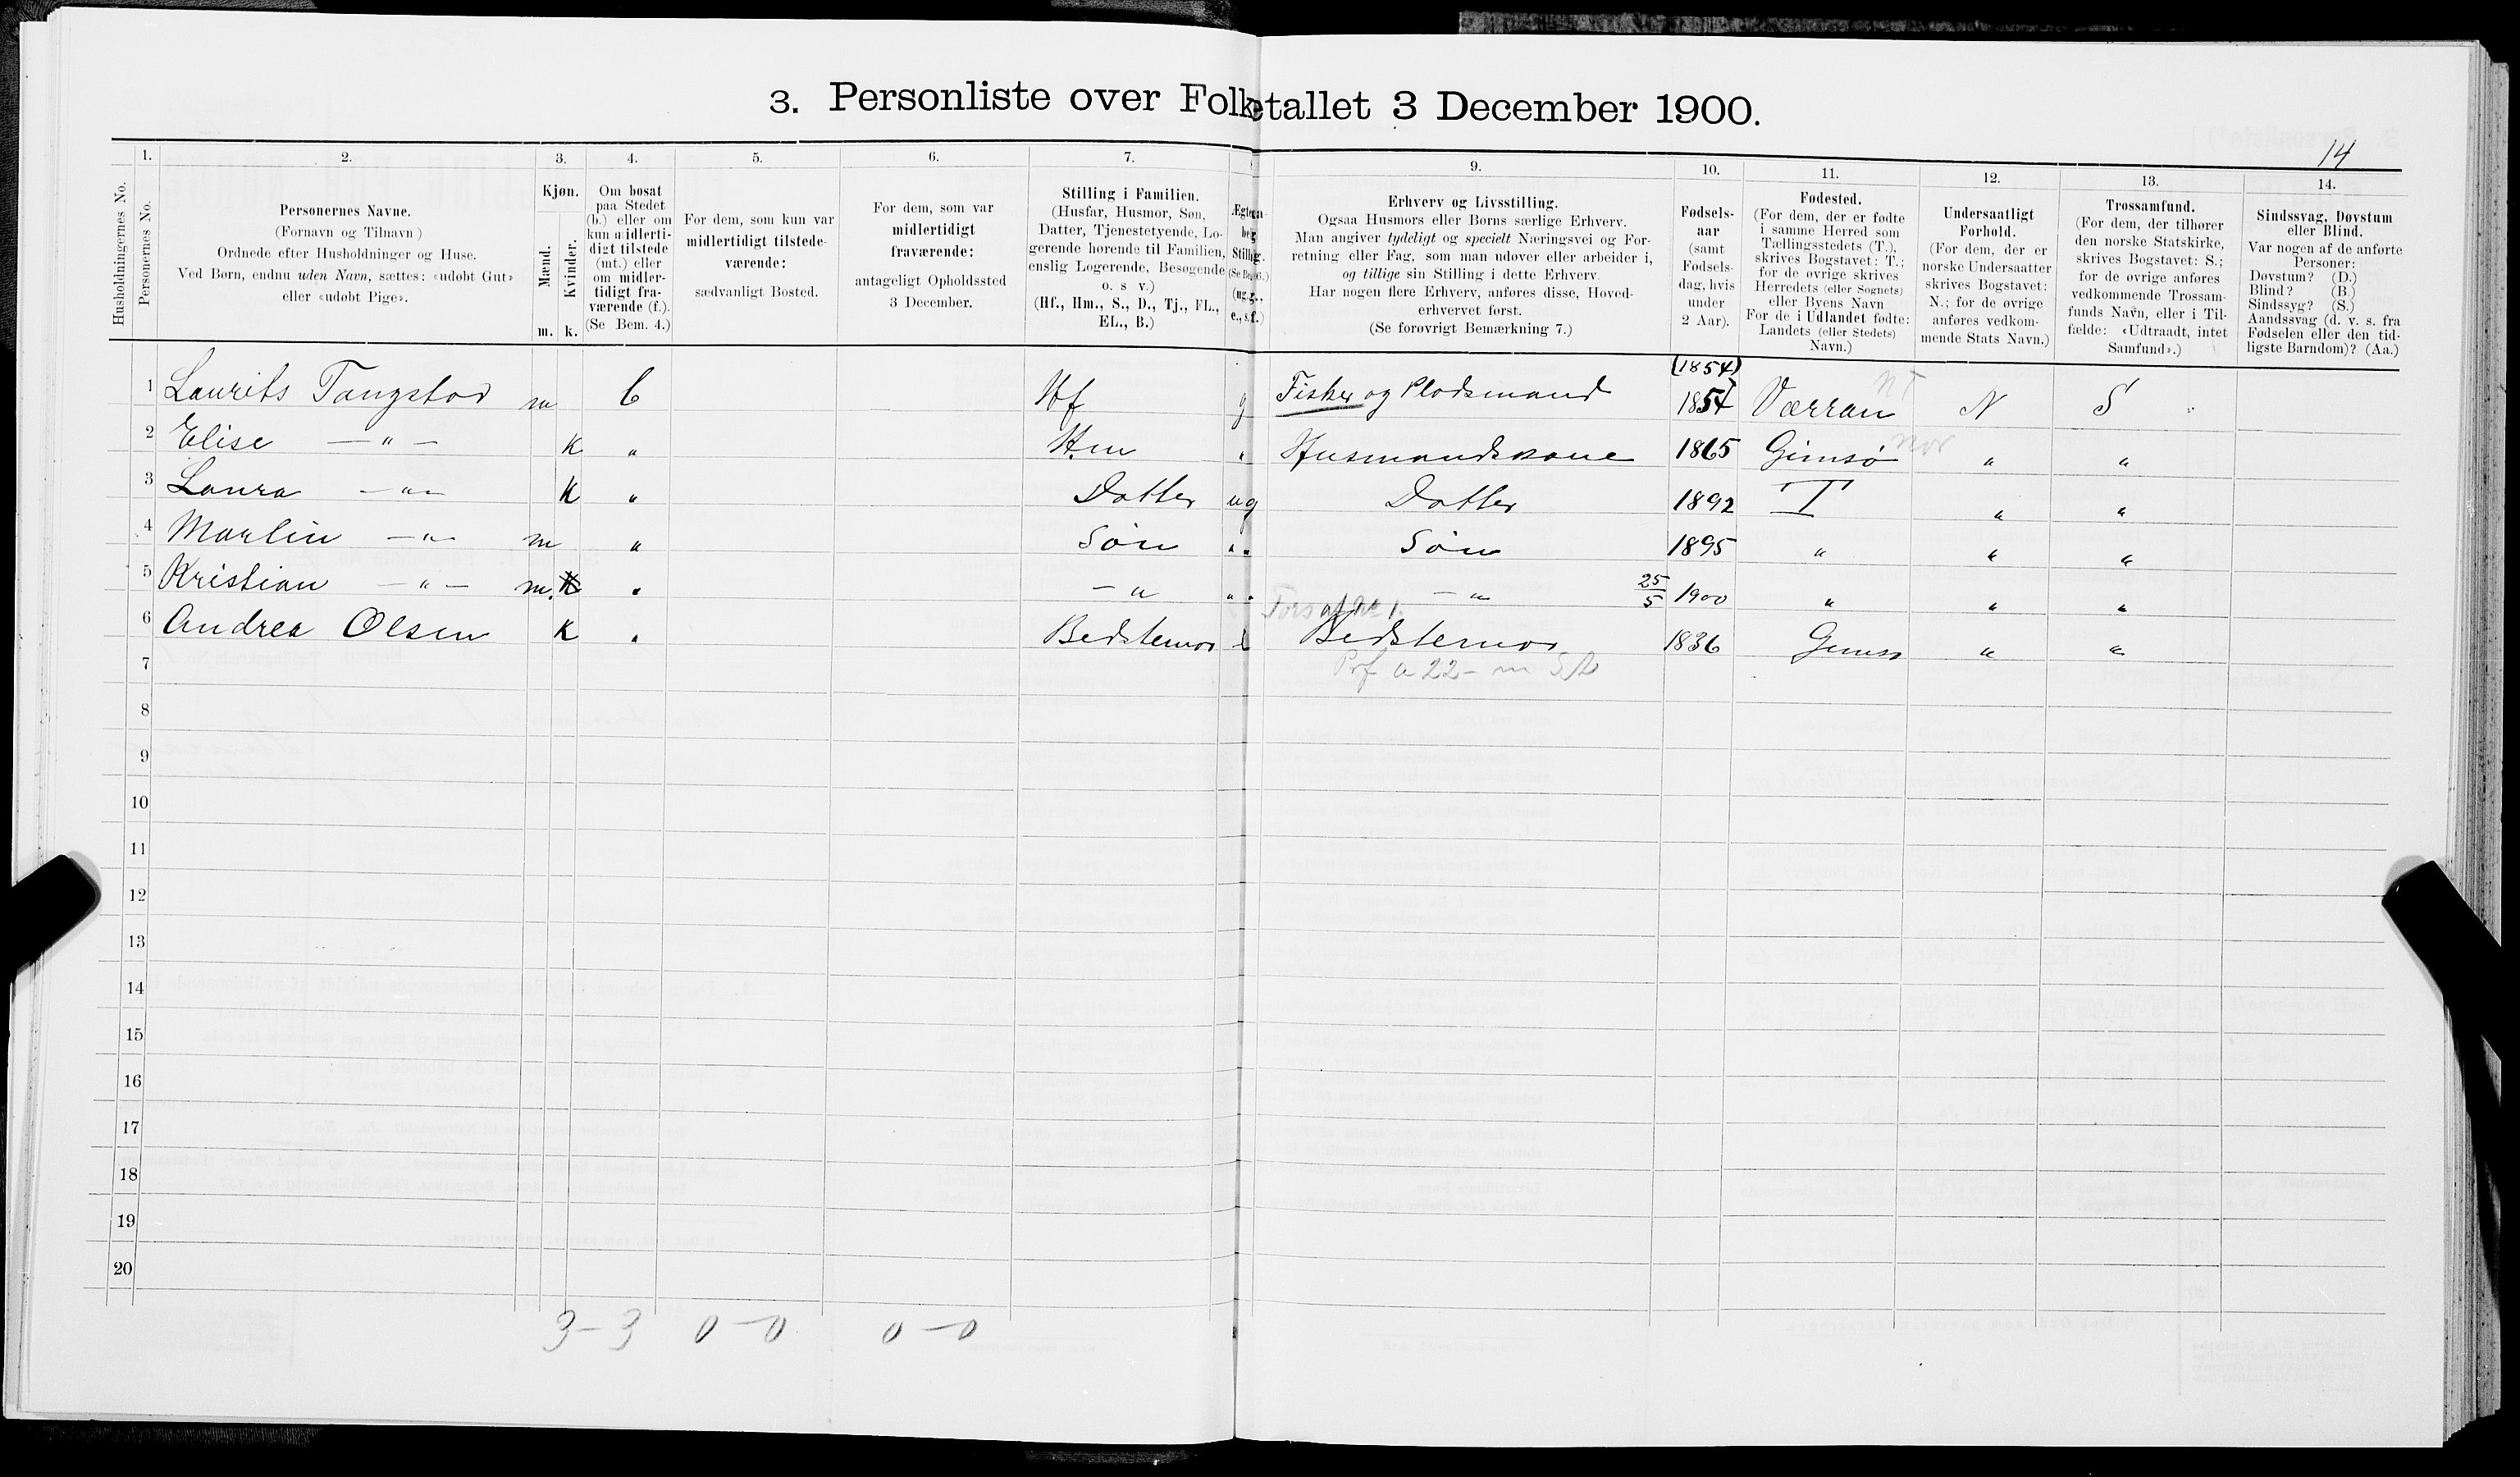 3. Personliste over Folketallet 3 December 1900.
14
1. 2. 3. 4. 5. 6. 7. 9. 10. 11. 12. 13. 14.
Husholdningernes No.
Personernes No.
Personernes Navne.
(Fornavn og Tilnavn)
Ordnede efter Husholdninger og Huse.
Ved Børn, endnu uden Navn, sættes: «udøbt Gut»
eller «udøbt Pige».
Kjøn.
Mænd.
Kvinder.
m. k.
Om bosat
paa Stedet
(b.) eller om
kun midlerti-
digt tilstede
(mt.) eller
om midler-
tidigt fra-
værende (f.).
(Se Bem. 4.)
For dem, som kun var
midlertidigt tilstede-
værende:
sædvanligt Bosted.
For dem, som var
midlertidigt
fraværende:
antageligt Opholdssted
3 December.
Stilling i Familien.
(Husfar, Husmor, Søn,
Datter, Tjenestetyende, Lo-
gerende hørende til Familien,
enslig Logerende, Besøgende
o. s v.)
(Hf., Hm., S., D., Tj., FL.,
EL., B.)
Erhverv og Livsstilling.
Ogsaa Husmors eller Børns særlige Erhverv.
Man angiver tydeligt og specielt Næringsvei og For-
retning eller Fag, som man udøver eller arbeider i,
og tillige sin Stilling i dette Erhverv.
Har nogen flere Erhverv, anføres disse, Hoved-
erhvervet først.
(Se forøvrigt Bemærkning 7.)
Fødsels-
aar
(samt
Fødsels-
dag, hvis
under
2 Aar).
Fødested.
(For dem, der er fødte
i samme Herred som
Tællingsstedets (T.),
skrives Bogstavet: T.;
for de øvrige skrives
Herredets (eller Sognets)
eller Byens Navn
For de i Udlandet fødte:
Landets (eller Stedets)
Navn.)
Undersaatligt
Forhold.
(For dem, der er
norske Undersaatter
skrives Bogstavet:
N.; for de øvrige
anføres vedkom-
mende Stats Navn.)
Trossamfund.
(For dem, der tilhører
den norske Statskirke,
skrives Bogstavet: S.;
for de øvrige anføres
vedkommende Trossam-
funds Navn, eller i Til-
fælde: «Udtraadt, intet
Samfund».)
Sindssvag, Døvstum
eller Blind.
Var nogen af de anførte
Personer:
Døvstum? (D.)
Blind? (B.)
Sindssyg? (S.)
Aandssvag (d. v. s. fra
Fødselen eller den tid-
ligste Barndom)? (Aa.)
(1854)
1 Laurits Tangstad m b Hf g Fisker og Pladsmand 1854 Værran N S
2 Elise —〃— K 〃 Hm 〃 Husmandskone 1865 Gimsø 〃 〃
3 Laura —〃— K 〃 Datter ug Datter 1892 T 〃 〃
4 Martin —〃— m 〃 Søn 〃 Søn 1895 〃 〃 〃
5 Kristian —〃— m. 〃 —〃 〃 —〃 25/5 1900 〃 〃 〃
Fors af No 1.
6 Andrea Olsen K 〃 Bedstemor Bedstemor 1836 Gimsø 〃 〃
7
8
9
10
11
12
13
14
15
16
17
18
19
20
3 – 3 0 – 0 0 – 0